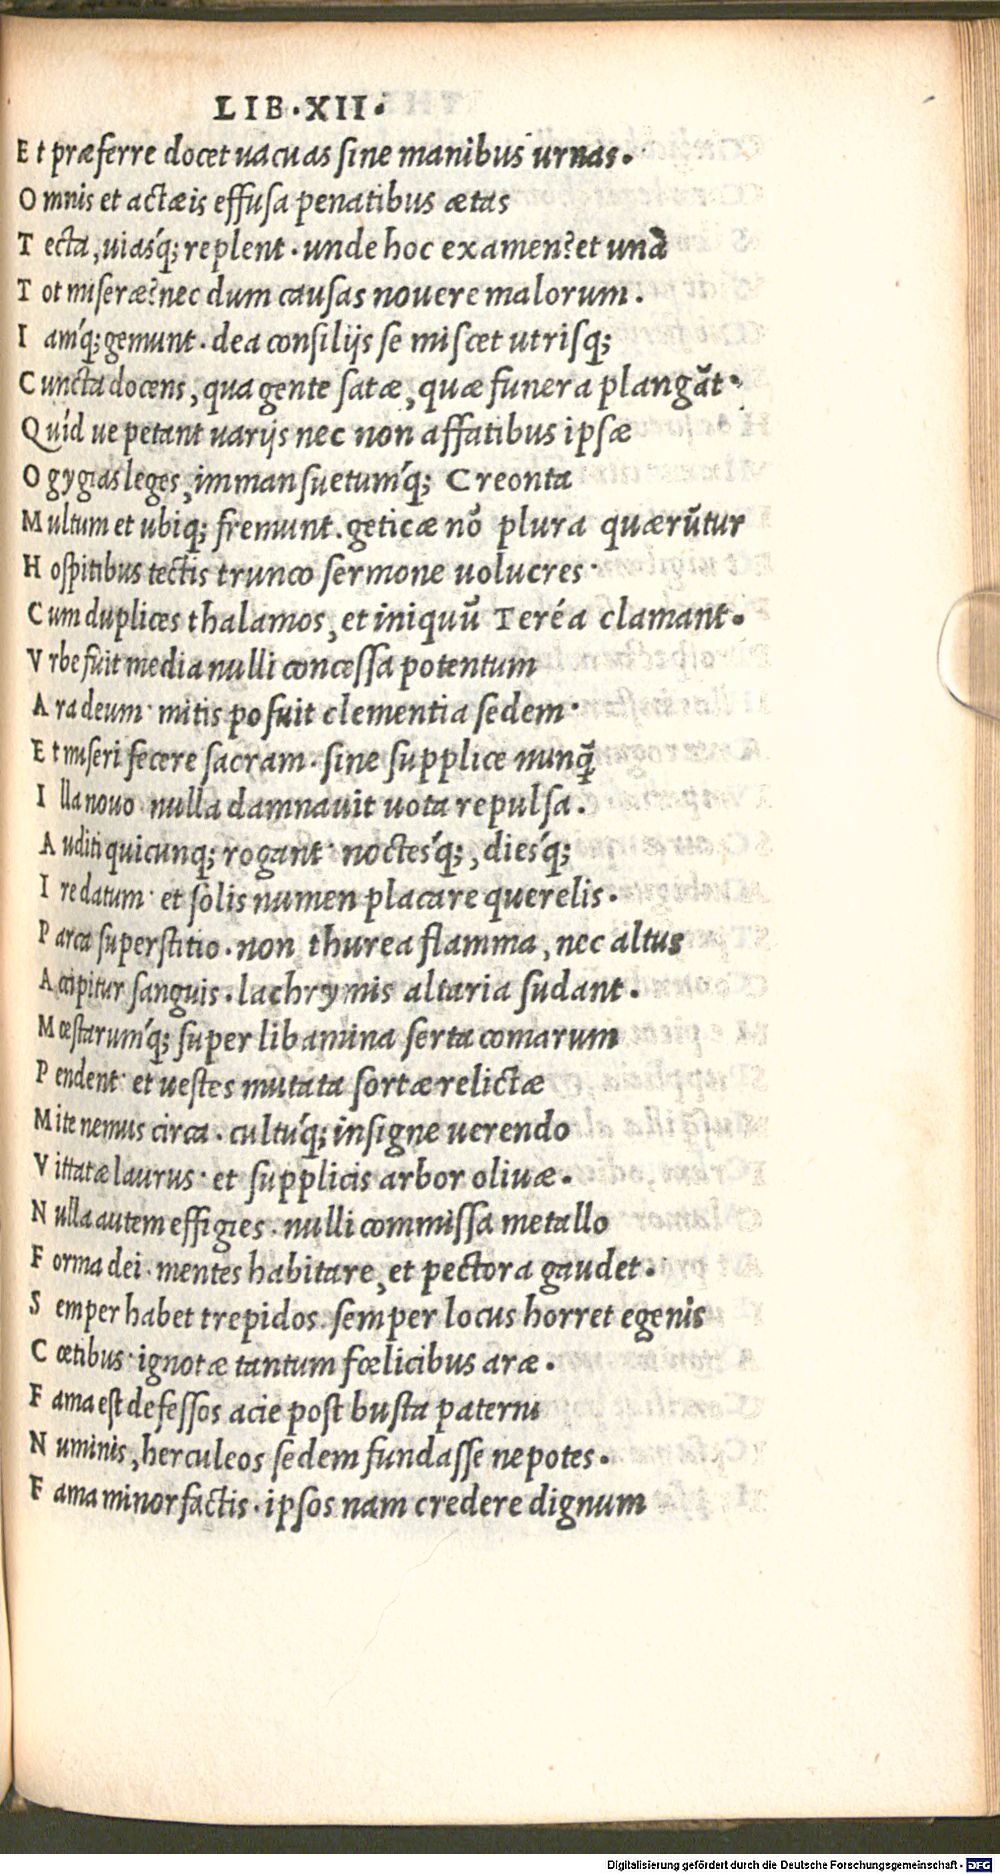 LIB·XII·
Et præferre docet uacuas sine manibus urnas.
Omnis et actæis effusa penatibus ætas
Tecta, uiasq́; replent· unde hoc examen? et una
Tot miseræ? nec dum causas nouere malorum.
Iamq́; gemunt· dea consilijs se miscet utrisq;
Cuncta docens, qua gente satæ, quæ funera plangãt·
Quid ue petant uarijs nec non affatibus ipsæ
Ogygias leges, immansuetumq́; Creonta
Multum et ubiq; fremunt. geticæ nõ plura quærũtur
Hospitibus tectis trunco sermone uolucres·
Cum duplices thalamos, et iniquũ Teréa clamant.
Vrbe fuit media nulli concessa potentum
Ara deum· mitis posuit clementia sedem·
Et miseri fecere sacram· sine supplice nunq̃
Illa nouo· nulla damnauit uota repulsa.
Auditi quicunq; rogant· noctesq́;, diesq́;
Ire datum· et solis numen placare querelis.
Parca superstitio· non thurea flamma, nec altus
Accipitur sanguis· lachrymis altaria sudant.
Mœstarumq́; super libamina serta comarum
Pendent· et uestes mutata sorte relictæ
Mite nemus circa· cultuq́; insigne uerendo
Vittatæ laurus· et supplicis arbor oliuæ.
Nulla autem effigies· nulli commissa metallo
Forma dei· mentes habitare, et pectora gaudet.
Semper habet trepidos. semper locus horret egenis
Cœtibus· ignotæ tantum fœlicibus aræ.
Fama est defessos acie post busta paterni
Numinis, herculeos sedem fundasse nepotes.
Fama minor factis· ipsos nam credere dignum
Digitalisierung gefördert durch die Deutsche Forschungsgemeinschaft - DFG